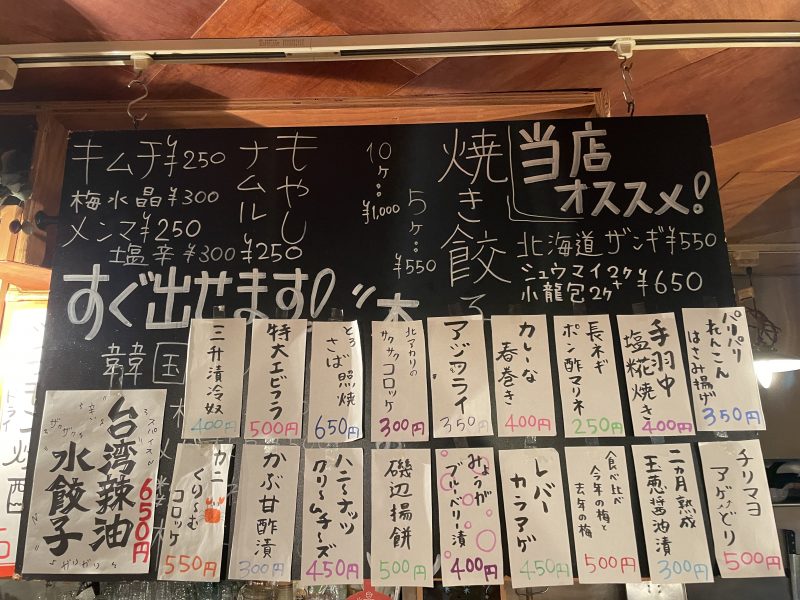 当店
オススメ!
北海道ザンギ¥550
シュウマイ2ケ+
小龍包2ケ ¥650
焼き餃子
5ケ…¥550
10ケ…¥1,000
もやし
ナムル
¥250
キムチ¥250
梅水晶¥300
メンマ¥250
塩辛¥300
すぐ出せます!
韓国
パリパリ
れんこん
はさみ揚げ
350円
手羽中
塩糀焼き
400円
長ネギ
ポン酢マリネ
250円
カレーな
春巻き
400円
アジフライ
350円
北アカリの
サクサクコロッケ
300円
とろ
さば照焼
650円
特大エビフライ
500円
三升漬冷奴
400円
チリマヨ
アゲどり
500円
二カ月熟成
玉恵醤油漬
300円
食べ比べ
今年の梅と
去年の梅
500円
レバー
カラアゲ
450円
みょうが
ブルーベリー漬
400円
磯辺揚餅
500円
ハニーナッツ
クリームチーズ
450円
かぶ甘酢漬
300円
カニ
くりーむ
コロッケ
550円
スパイス
辛い
ザクザク
台湾辣油
水餃子
ガリガリ
650円